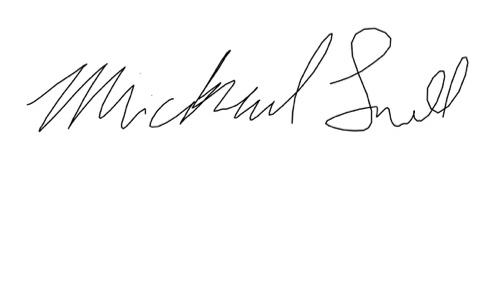 Michael Snell